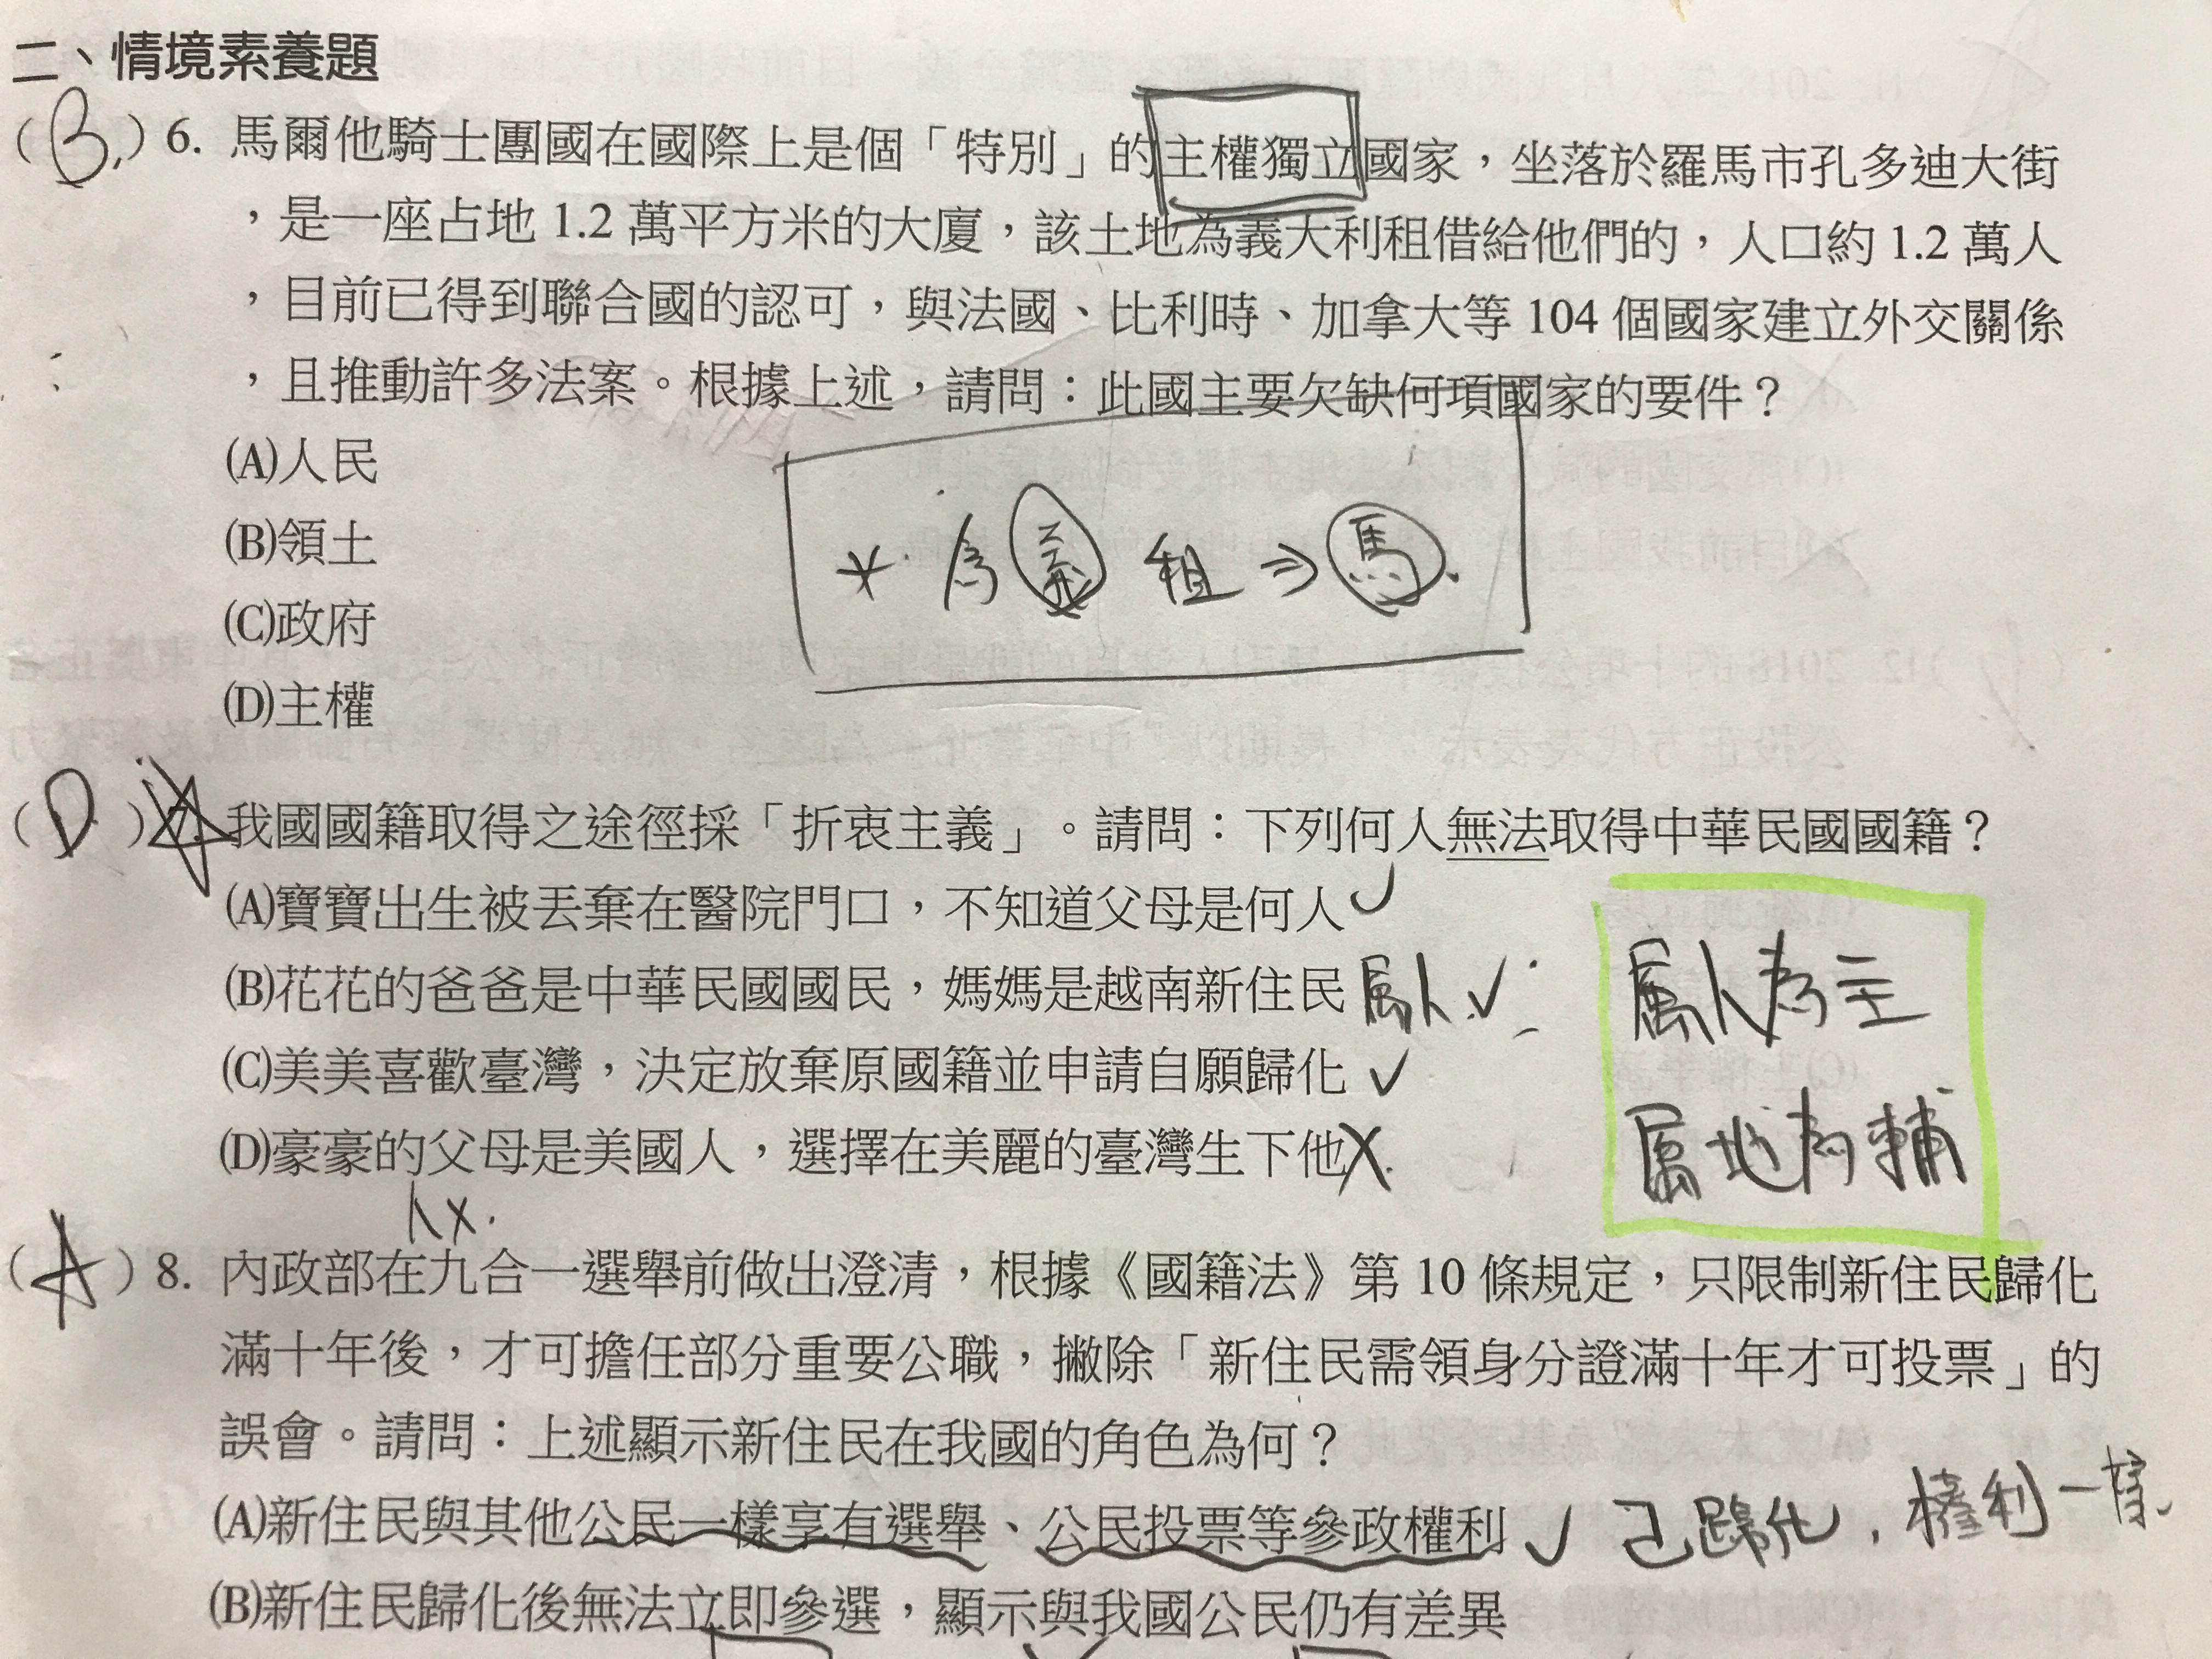 二、情境素養題
(B.) 6. 馬爾他騎士團國在國際上是個「特別」的主權獨立國家，坐落於羅馬市孔多迪大街
，是一座占地 1.2 萬平方米的大廈，該土地為義大利租借給他們的，人口約 1.2 萬人
，目前已得到聯合國的認可，與法國、比利時、加拿大等 104 個國家建立外交關係
，且推動許多法案。根據上述，請問：此國主要欠缺何項國家的要件？
(A)人民
(B)領土
(C)政府
(D)主權
* 為義租⇒馬.
(D) 我國國籍取得之途徑採「折衷主義」。請問：下列何人無法取得中華民國國籍？
(A)寶寶出生被丟棄在醫院門口，不知道父母是何人✓
(B)花花的爸爸是中華民國國民，媽媽是越南新住民 屬人✓
(C)美美喜歡臺灣，決定放棄原國籍並申請自願歸化 ✓
(D)豪豪的父母是美國人，選擇在美麗的臺灣生下他X.
人X.
屬人為主
屬地為輔
(A) 8. 內政部在九合一選舉前做出澄清，根據《國籍法》第 10 條規定，只限制新住民歸化
滿十年後，才可擔任部分重要公職，撇除「新住民需領身分證滿十年才可投票」的
誤會。請問：上述顯示新住民在我國的角色為何？
(A)新住民與其他公民一樣享有選舉、公民投票等參政權利 ✓ 已歸化，權利一樣
(B)新住民歸化後無法立即參選，顯示與我國公民仍有差異